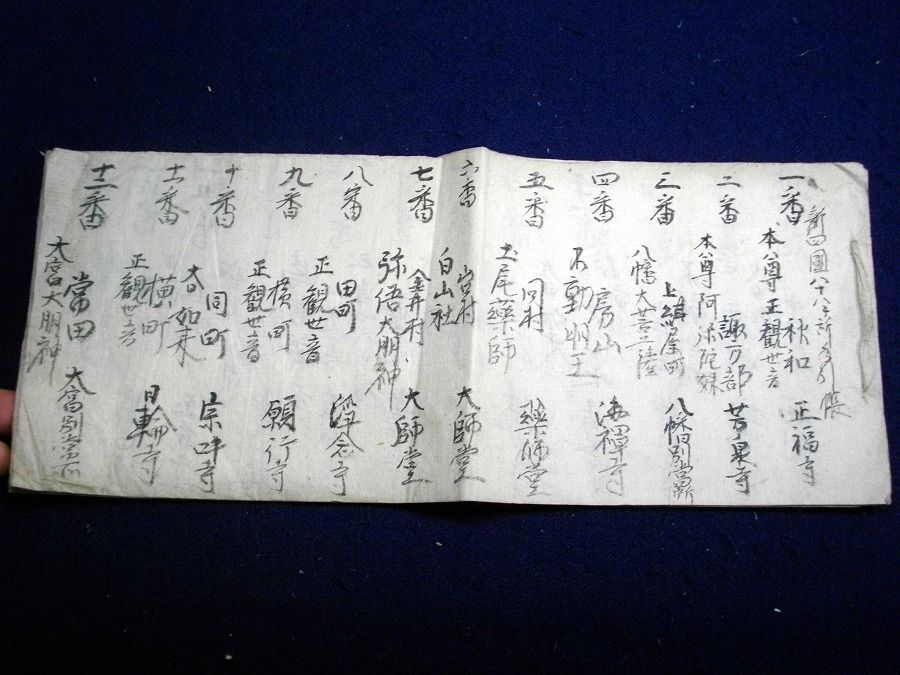 新四國八十八ヶ所 帳
一番 秋和 正福寺
本尊 正観世音
二番 諏方部 芳泉寺
本尊 阿弥陀妹
三番 上 町 八幡別当所
八幡大菩薩
四番 房山 海禅寺
不動明王
五番 同村 薬師堂
玉尾藥師
六番 山口村 大師堂
白山社
七番 金井村 大師堂
弥倍大明神
八番 田町 浄念寺
正観世音
九番 横町 願行寺
正観世音
十番 同町 宗吽寺
大如来
十一番 横町 日輪寺
正観世音
十二番 常田 大宮別当
大宮大明神